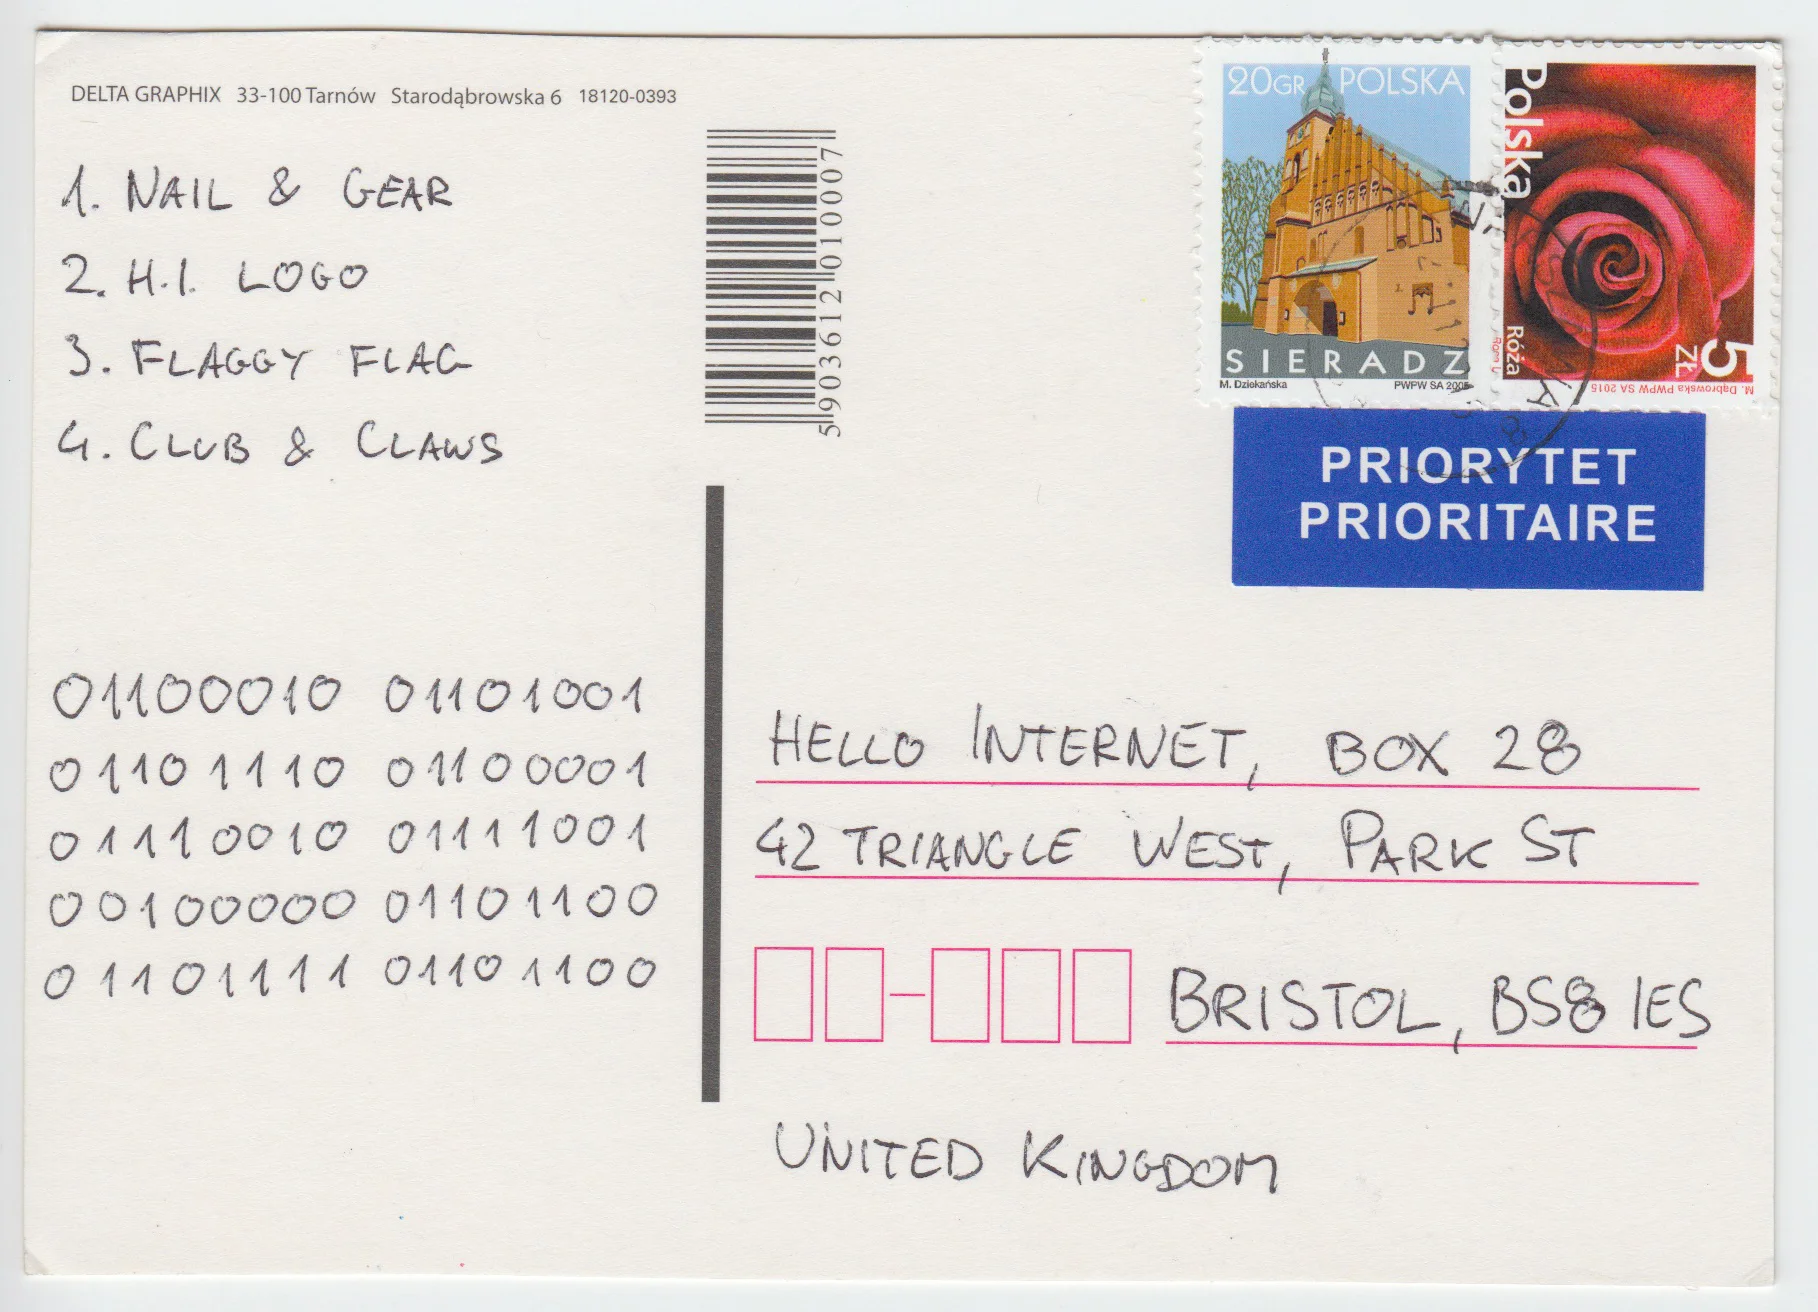 DELTA GRAPHIX 33-100 Tarnów Starodąbrowska 6 18120-0393
1. NAIL & GEAR
2. H.I. LOGO
3. FLAGGY FLAG
4. CLUB & CLAWS
01100010 01101001
01101110 01100001
01110010 01111001
00100000 01101100
01101111 01101100
5 903612 010007
20GR POLSKA
SIERADZ
M. Dziekańska PWPW SA 2005
Polska
Róża
5 ZŁ
M. Dąbrowska PWPW SA 2015
PRIORYTET
PRIORITAIRE
HELLO INTERNET, BOX 28
42 TRIANGLE WEST, PARK ST
BRISTOL, BS8 1ES
UNITED KINGDOM